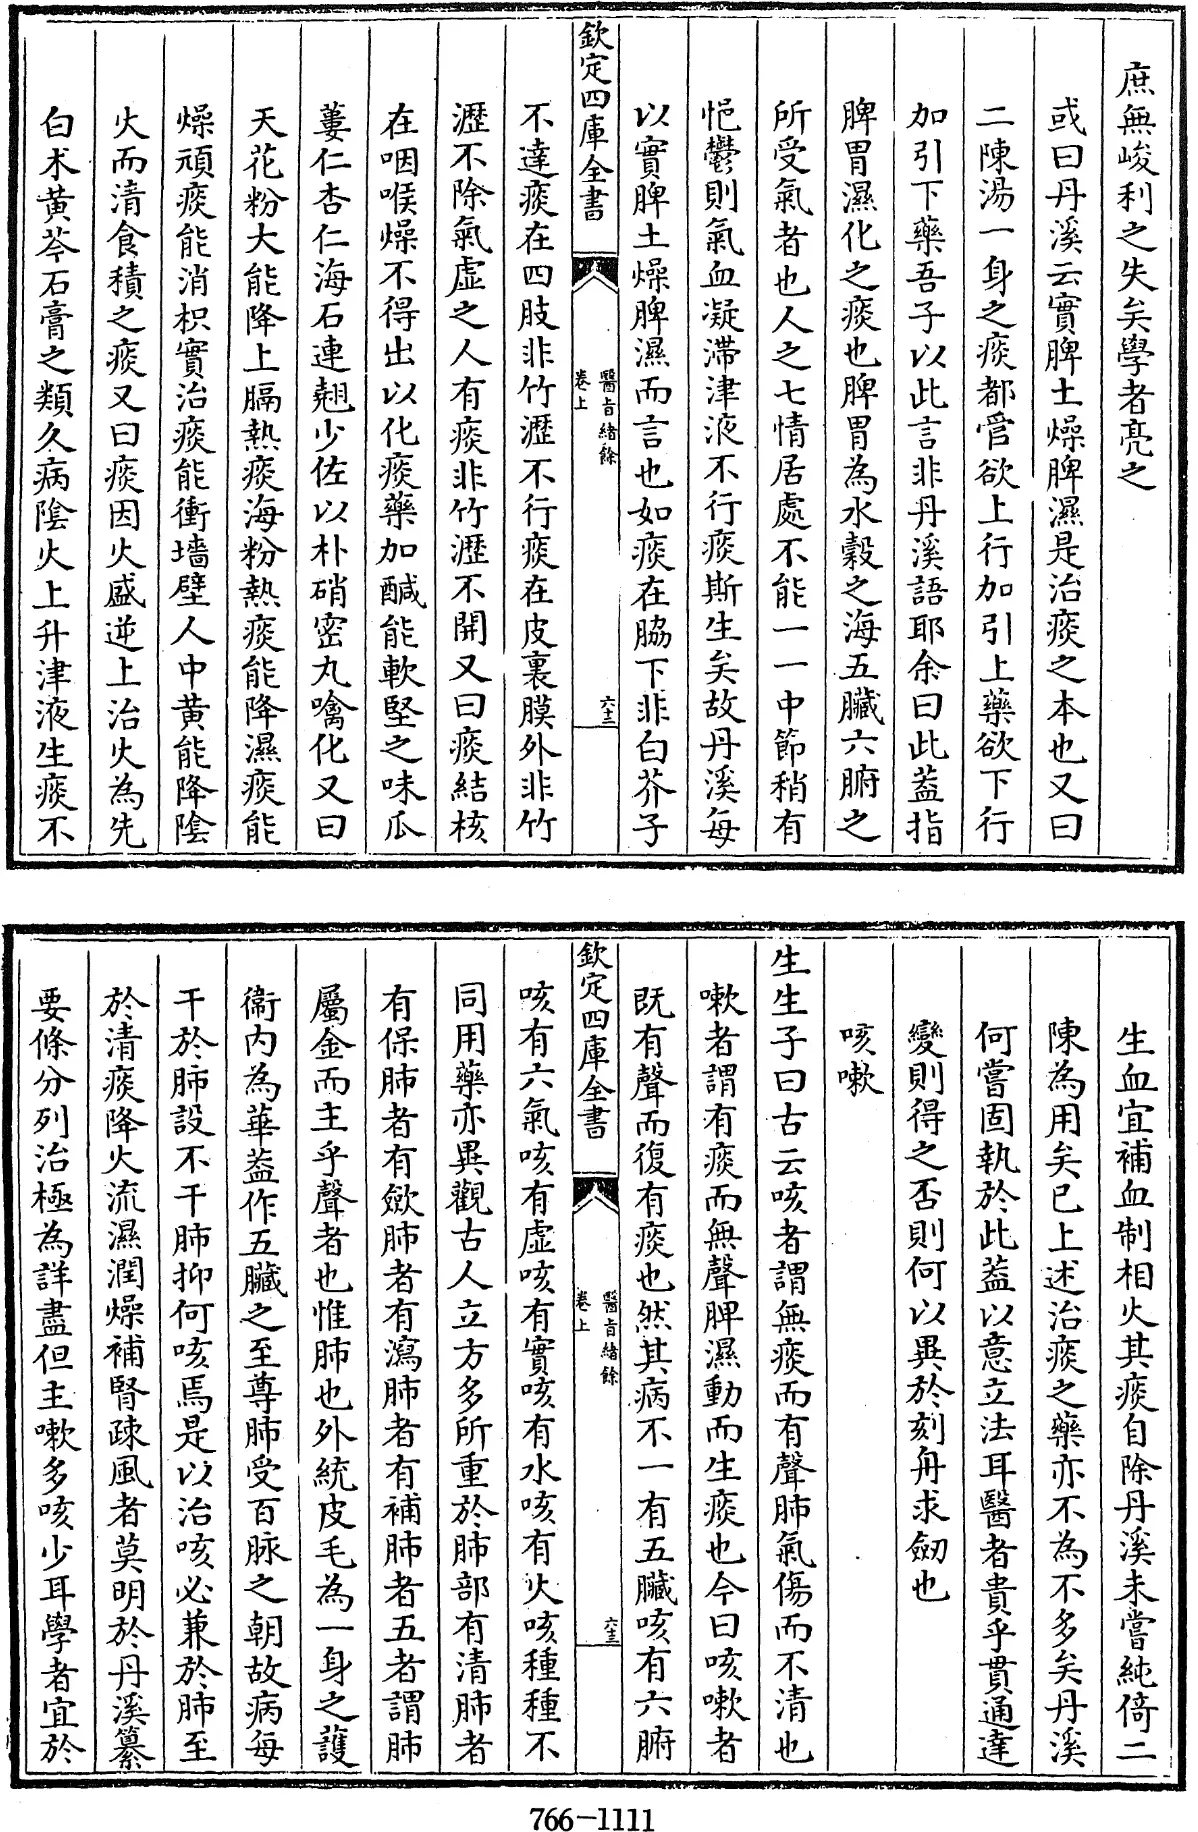 庶無峻利之失矣學者亮之
或曰丹溪云實脾土燥脾濕是治痰之本也又曰
二陳湯一身之痰都管欲上行加引上藥欲下行
加引下藥吾子以此言非丹溪語耶余曰此蓋指
脾胃濕化之痰也脾胃為水穀之海五臟六腑之
所受氣者也人之七情居處不能一一中節稍有
悒鬱則氣血凝滯津液不行痰斯生矣故丹溪每
以實脾土燥脾濕而言也如痰在脇下非白芥子
欽定四庫全書
醫旨緒餘
卷上
六十三
不達痰在四肢非竹瀝不行痰在皮裏膜外非竹
瀝不除氣虛之人有痰非竹瀝不開又曰痰結核
在咽喉燥不得出以化痰藥加醎能軟堅之味瓜
蔞仁杏仁海石連翹少佐以朴硝密丸噙化又曰
天花粉大能降上膈熱痰海粉熱痰能降濕痰能
燥頑痰能消枳實治痰能衝墻壁人中黄能降陰
火而清食積之痰又曰痰因火盛逆上治火為先
白术黄芩石膏之類久病陰火上升津液生痰不
生血宜補血制相火其痰自除丹溪未嘗純倚二
陳為用矣已上述治痰之藥亦不為不多矣丹溪
何嘗固執於此蓋以意立法耳醫者貴乎貫通達
變則得之否則何以異於刻舟求劒也
咳嗽
生生子曰古云咳者謂無痰而有聲肺氣傷而不清也
嗽者謂有痰而無聲脾濕動而生痰也今曰咳嗽者
既有聲而復有痰也然其病不一有五臟咳有六腑
欽定四庫全書
醫旨緒餘
卷上
六十三
咳有六氣咳有虛咳有實咳有水咳有火咳種種不
同用藥亦異觀古人立方多所重於肺部有清肺者
有保肺者有歛肺者有瀉肺者有補肺者五者謂肺
屬金而主乎聲者也惟肺也外統皮毛為一身之護
衞内為華蓋作五臟之至尊肺受百脉之朝故病每
干於肺設不干肺抑何咳焉是以治咳必兼於肺至
於清痰降火流濕潤燥補腎疎風者莫明於丹溪纂
要條分列治極為詳盡但主嗽多咳少耳學者宜於
766-1111